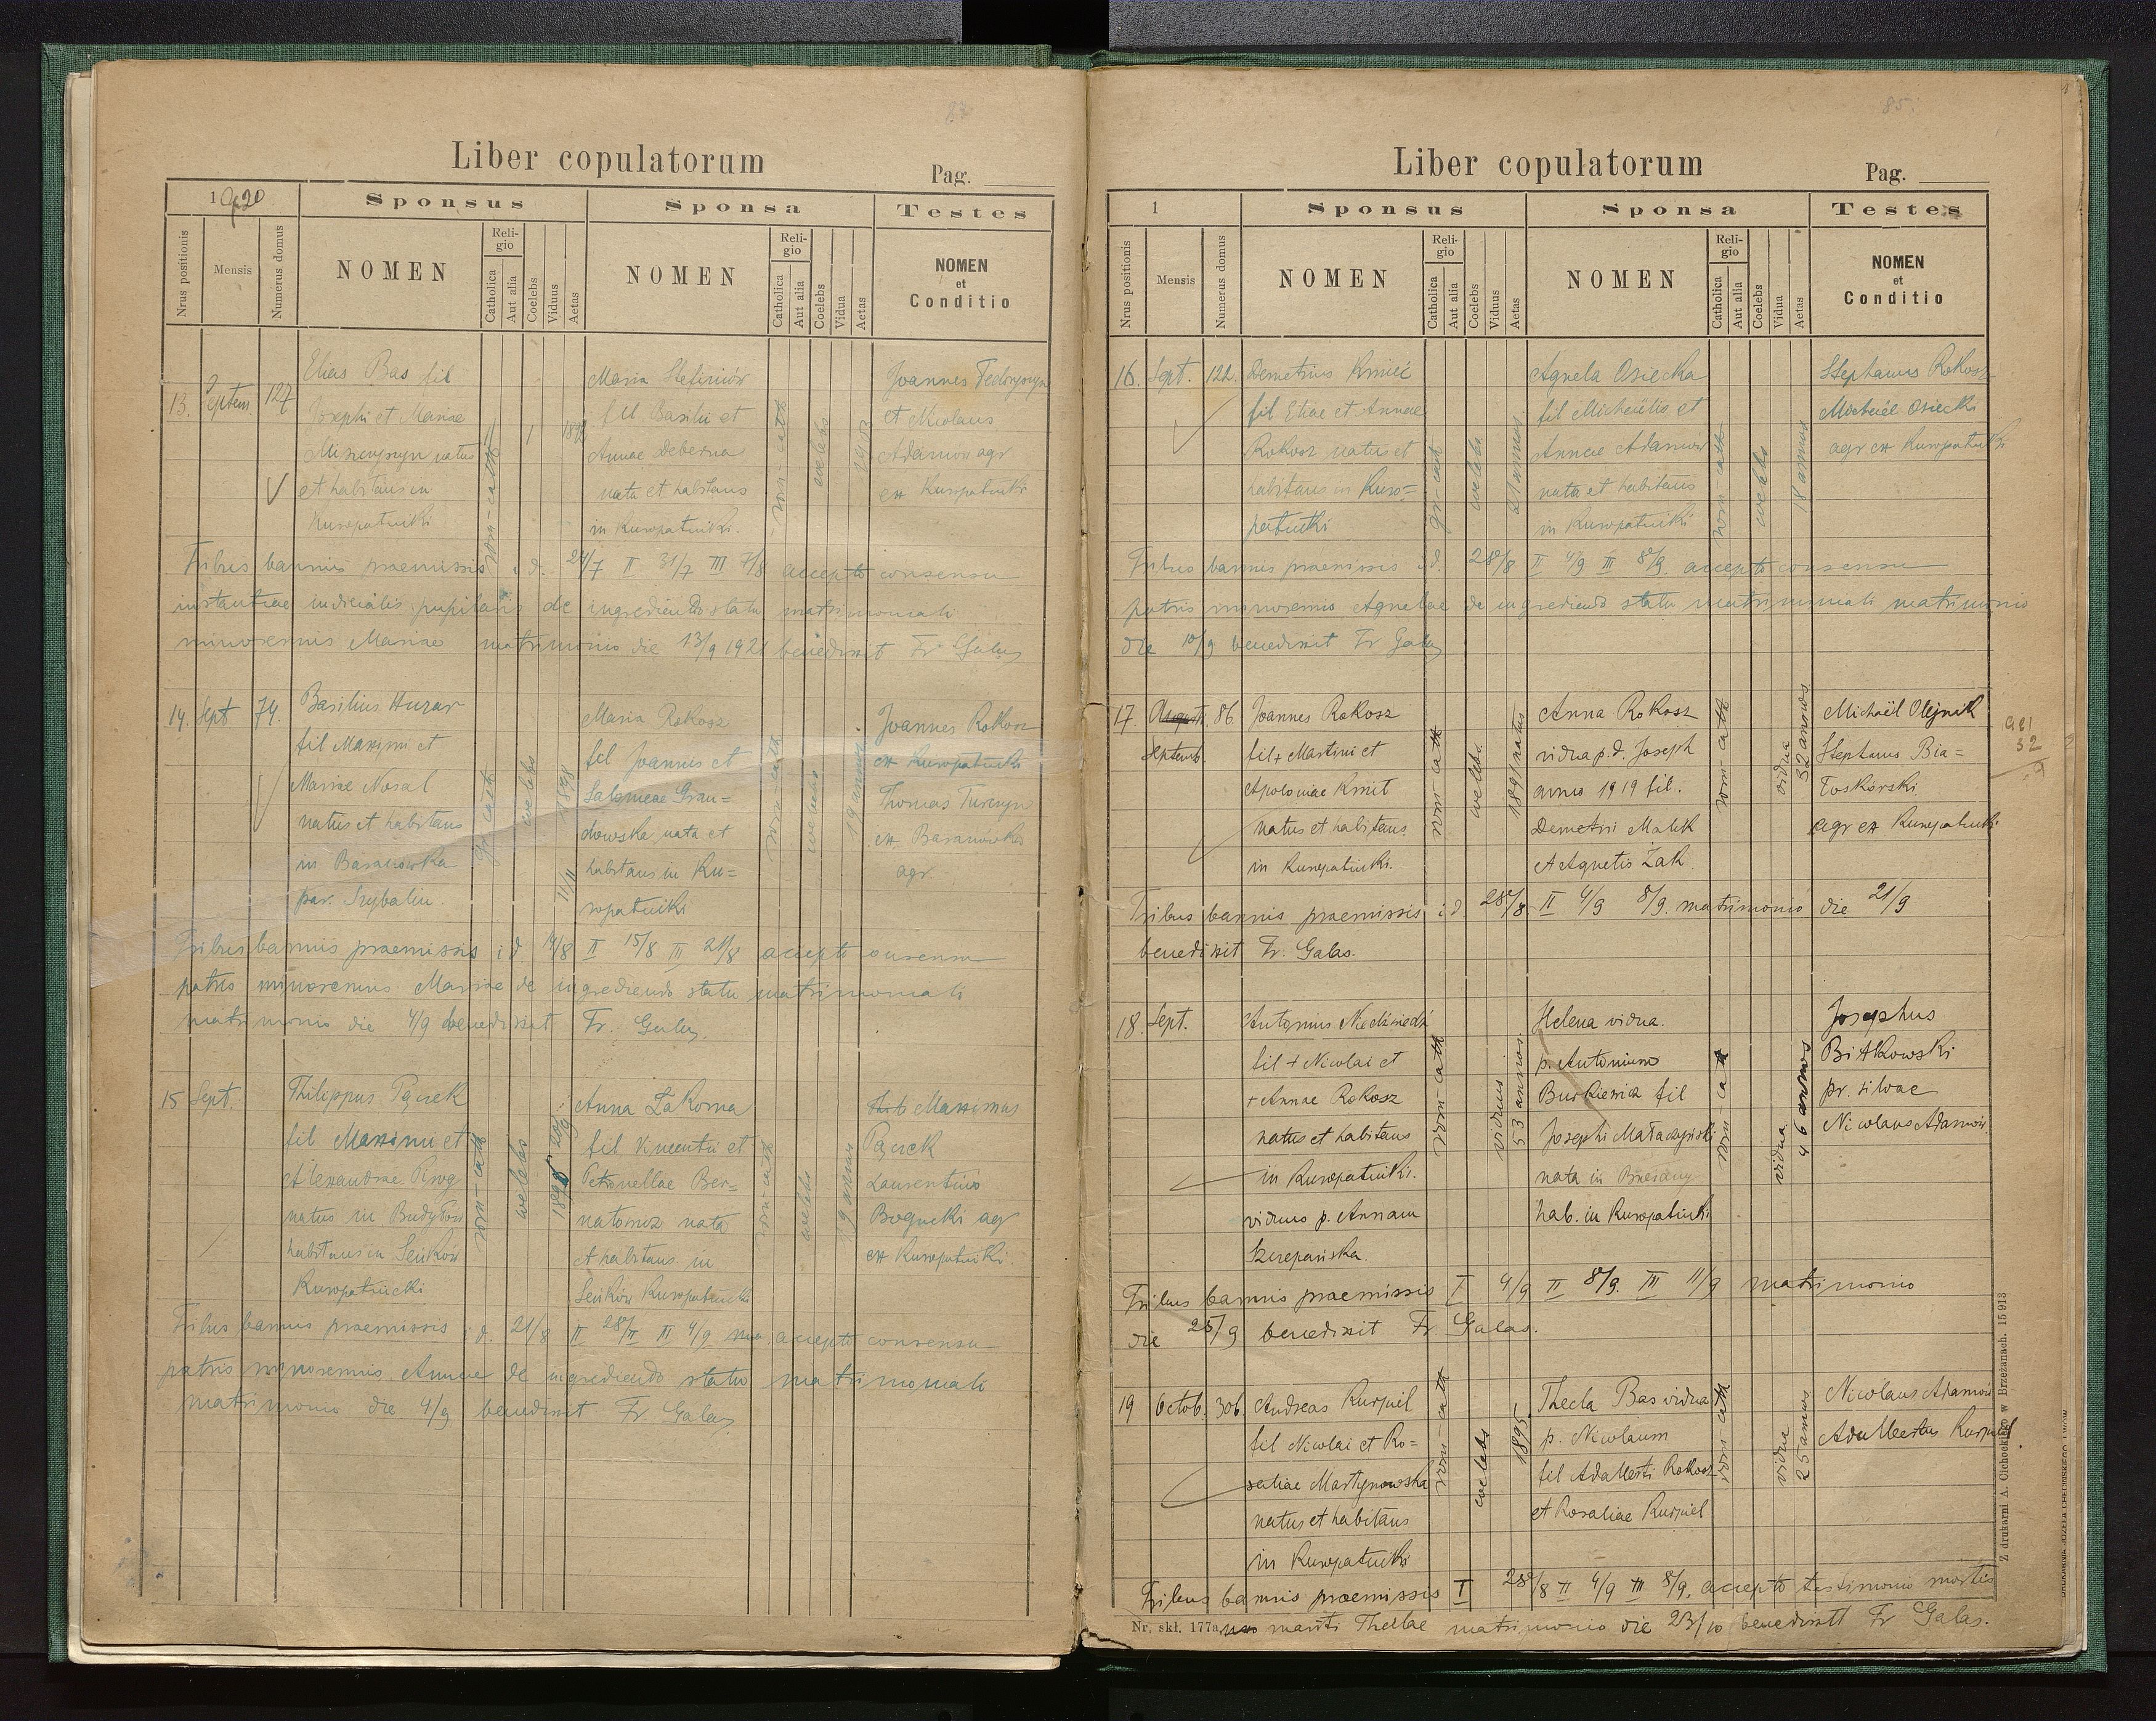 Liber copulatorum
Pag.
1920
Sponsus
Sponsa
Testes
Nrus positionis
Mensis
Numerus domus
NOMEN
Religio
Catholica
Aut alia
Coelebs
Viduus
Aetas
NOMEN
Religio
Catholica
Aut alia
Coelebs
Vidua
Aetas
NOMEN
et
Conditio
13. Septem. 127
Elias Bas fil
Josephi et Mariae
natus
et habitans in
Kuropatniki
rom-cath
1
Maria Stefiniów
fil Basilii et
Annae Deberna
nata et habitans
in Kuropatniki.
rom-cath
coelebs
Joannes Fedoryszyn
et Nicolaus
Adamów agr
ex Kuropatniki
Tribus bannis praemissis i. d. 24/7 II 31/7 III 7/8 accepto consensu
instantiae judicialis pupilaris de ingrediendo statu matrimoniali
minorennis Mariae matrimonio die 13/9 1921 benedixit Fr Galas
14. Sept 74.
Basilius Huzar
fil Maximi et
Mariae Nosal
natus et habitans
in Baranówka
par.
gr cath
coelebs
11/11 1898
Maria Rokosz
fil Joannis et
Salomeae Gran=
dowska nata et
habitans in Ku=
ropatniki
rom-cath
coelebs
19 annor.
Joannes Rokosz
ex Kuropatniki
Thomas
ex Baranówka
agr.
Tribus bannis praemissis i d. 14/8 II 15/8 III 21/8 accepto consensu
patris minorennis Mariae de ingrediendo statu matrimoniali
matrimonio die 4/9 benedixit Fr. Galas
15 Sept.
Philippus Pącek
fil Maximi et
Alexandrae Rog
natus in Budyłów
habitans in Seńków
Kuropatnicki
rom-cath
coelebs
Anna Łakoma
fil Vincentii et
Petronellae Ber=
natowicz nata
et habitans in
Seńków Kuropatnicki
rom-cath
coelebs
19 annor
Maximus
Pącek
Laurentius
Bogucki agr
ex Kuropatniki.
Tribus bannis praemissis i d. 21/8 II 28/ III 4/9 accepto consensu
patris minorennis Annae de ingrediendo statu matrimoniali
matrimonio die 4/9 benedixit Fr Galas
85.
Liber copulatorum
Pag.
1
Sponsus
Sponsa
Testes
Nrus positionis
Mensis
Numerus domus
NOMEN
Religio
Catholica
Aut alia
Coelebs
Viduus
Aetas
NOMEN
Religio
Catholica
Aut alia
Coelebs
Vidua
Aetas
NOMEN
et
Conditio
16. Sept. 122.
Demetrius Kmieć
fil Eliae et Annae
Rokosz natus et
habitans in Kuro=
patniki
gr-cath
coelebs
21 annor
Agnela Osiecka
fil Michaëlis et
Annae Adamów
nata et habitans
in Kuropatniki
rom-cath
coelebs
18 annor
Stephanus Rokosz
Michaël Osiecki
agr ex Kuropatniki
Tribus bannis praemissis i d. 28/8 II 4/9 III 8/9. accepto consensu
patris minorennis Agnelae de ingrediendo statu matrimoniali matrimonio
die 10/9 benedixit Fr Galas
17. August. 86.
Septemb.
Joannes Rokosz
fil + Martini et
Apoloniae Kmit
natus et habitans
in Kuropatniki.
rom-cath
coelebs.
1891 natus
Anna Rokosz
vidua p. d. Joseph
anno 1919 fil.
Demetrii Malik
et Agnetis Żak
rom-cath
vidua
32 annos
Michaël Olejnik
Stephanus Bia=
łoskórski
agr ex Kuropatniki
Tribus bannis praemissis i d. 28/8 II 4/9 8/9. matrimonio die 21/9
benedixit Fr. Galas.
18. Sept.
Antonius Niedźwiedź
fil + Nicolai et
+ Annae Rokosz
natus et habitans
in Kuropatniki.
viduus p. Annam
Szczepańska.
rom-cath
viduus
53 annor.
Helena vidua.
p. Antonium
Burkiewicz fil
Josephi Mataczyński
nata in Brzeżany
hab. in Kuropatniki
rom-cath
vidua
46 annos
Josephus
Bitkowski
pr. silvae
Nicolaus Adamów.
Tribus bannis praemissis I 4/9 II 8/9. III 11/9 matrimonio
die 25/9 benedixit Fr Galas.
19 Octob. 306.
Andreas Kurpiel
fil Nicolai et Ro=
saliae Martynowska
natus et habitans
in Kuropatniki
rom-cath
coelebs
1895
Thecla Bas vidua
p. Nicolaum
fil Adalberti Rokosz
et Rosaliae Kurpiel
rom-cath
vidua
25 annos
Nicolaus Adamów
Adalbertus Kurpiel.
Tribus bannis praemissis I 28/8 II 4/9 III 8/9. accepto testimonio mortis
Nr. skł. 177a. mariti Theclae matrimonio die 23/10 benedixit Fr Galas.
Z drukarni A. Cichockiego w Brzeżanach. 15913